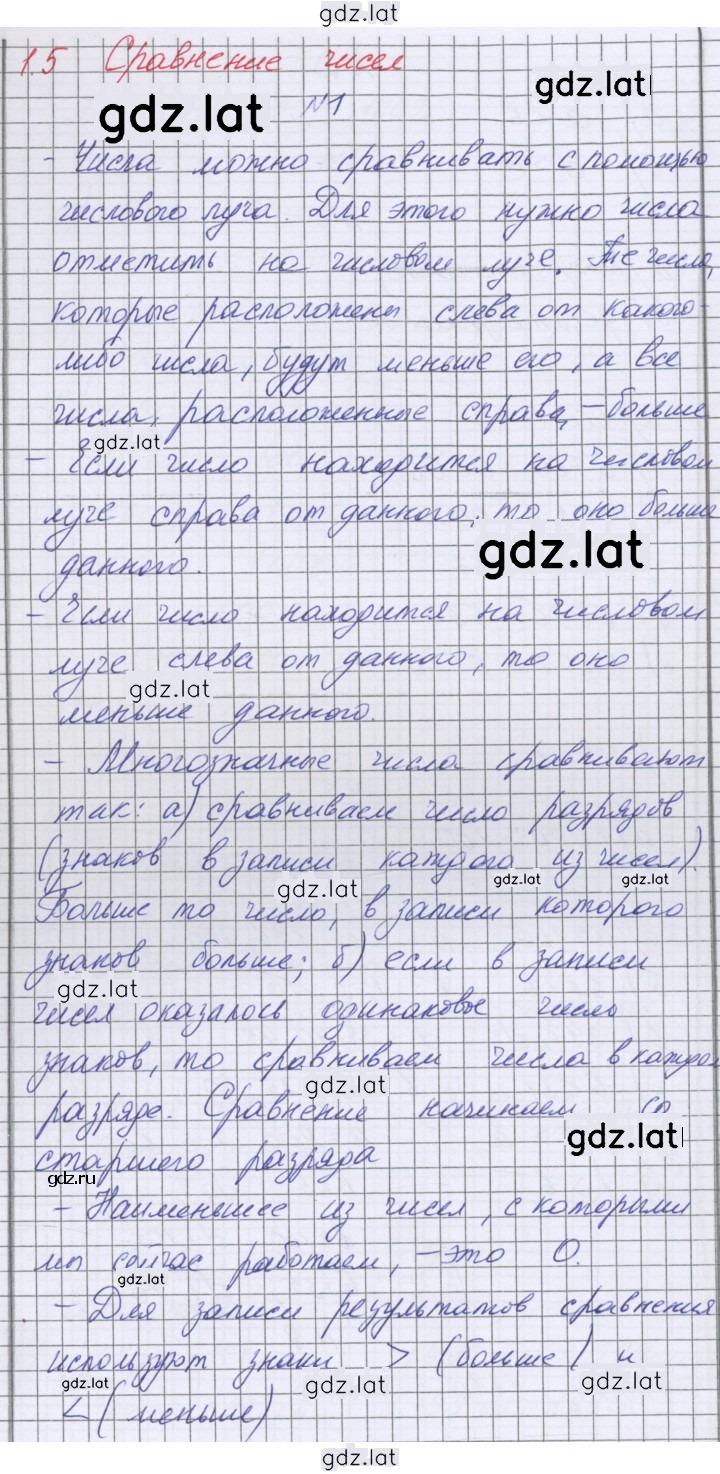 gdz.lat
1.5 Сравнение чисел
gdz.lat
gdz.lat
№1
- Числа можно сравнивать с помощью
числового луча. Для этого нужно числа
отметить на числовом луче. Те числа,
которые расположены слева от какого-
либо числа, будут меньше его, а все
числа, расположенные справа, - больше
gdz.lat
- Если число находится на числовом
луче справа от данного, то оно больше
gdz.lat
данного.
- Если число находится на числовом
луче слева от данного, то оно
gdz.lat
меньше данного.
- Многозначные числа сравнивают
так: а) сравниваем число разрядов
(знаков в записи каждого из чисел).
gdz.lat
gdz.lat
gdz.lat
Больше то число, в записи которого
знаков больше; б) если в записи
gdz.lat
чисел оказалось одинаковое число
знаков, то сравниваем числа в каждом
gdz.lat
разряде. Сравнение начинаем со
gdz.lat
старшего разряда
gdz.ru
- Наименьшее из чисел, с которыми
мы сейчас работаем, - это 0.
gdz.lat
- Для записи результатов сравнения
используют знаки > (больше) и
gdz.lat
gdz.lat
gdz.lat
< (меньше)
gdz.lat